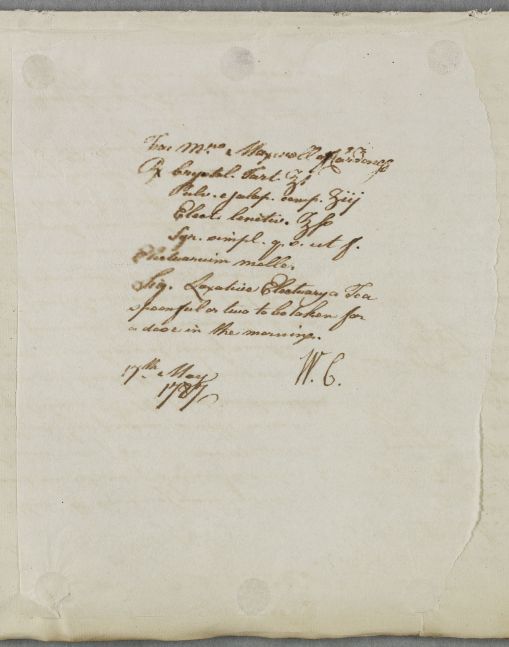 For Mrs. Maxwell of Cardoness
℞ Crystal. Tart. ℥i
Pulv. e jalap. comp. ʒiij
Elect. lenitiv. ℥ß
Syr. simpl. q. s. ut f.
Electuarium molle.
Sig. Laxative Electuary a Tea
spoonful or two to be taken for
a dose in the morning.
17th May
1787
W. C.